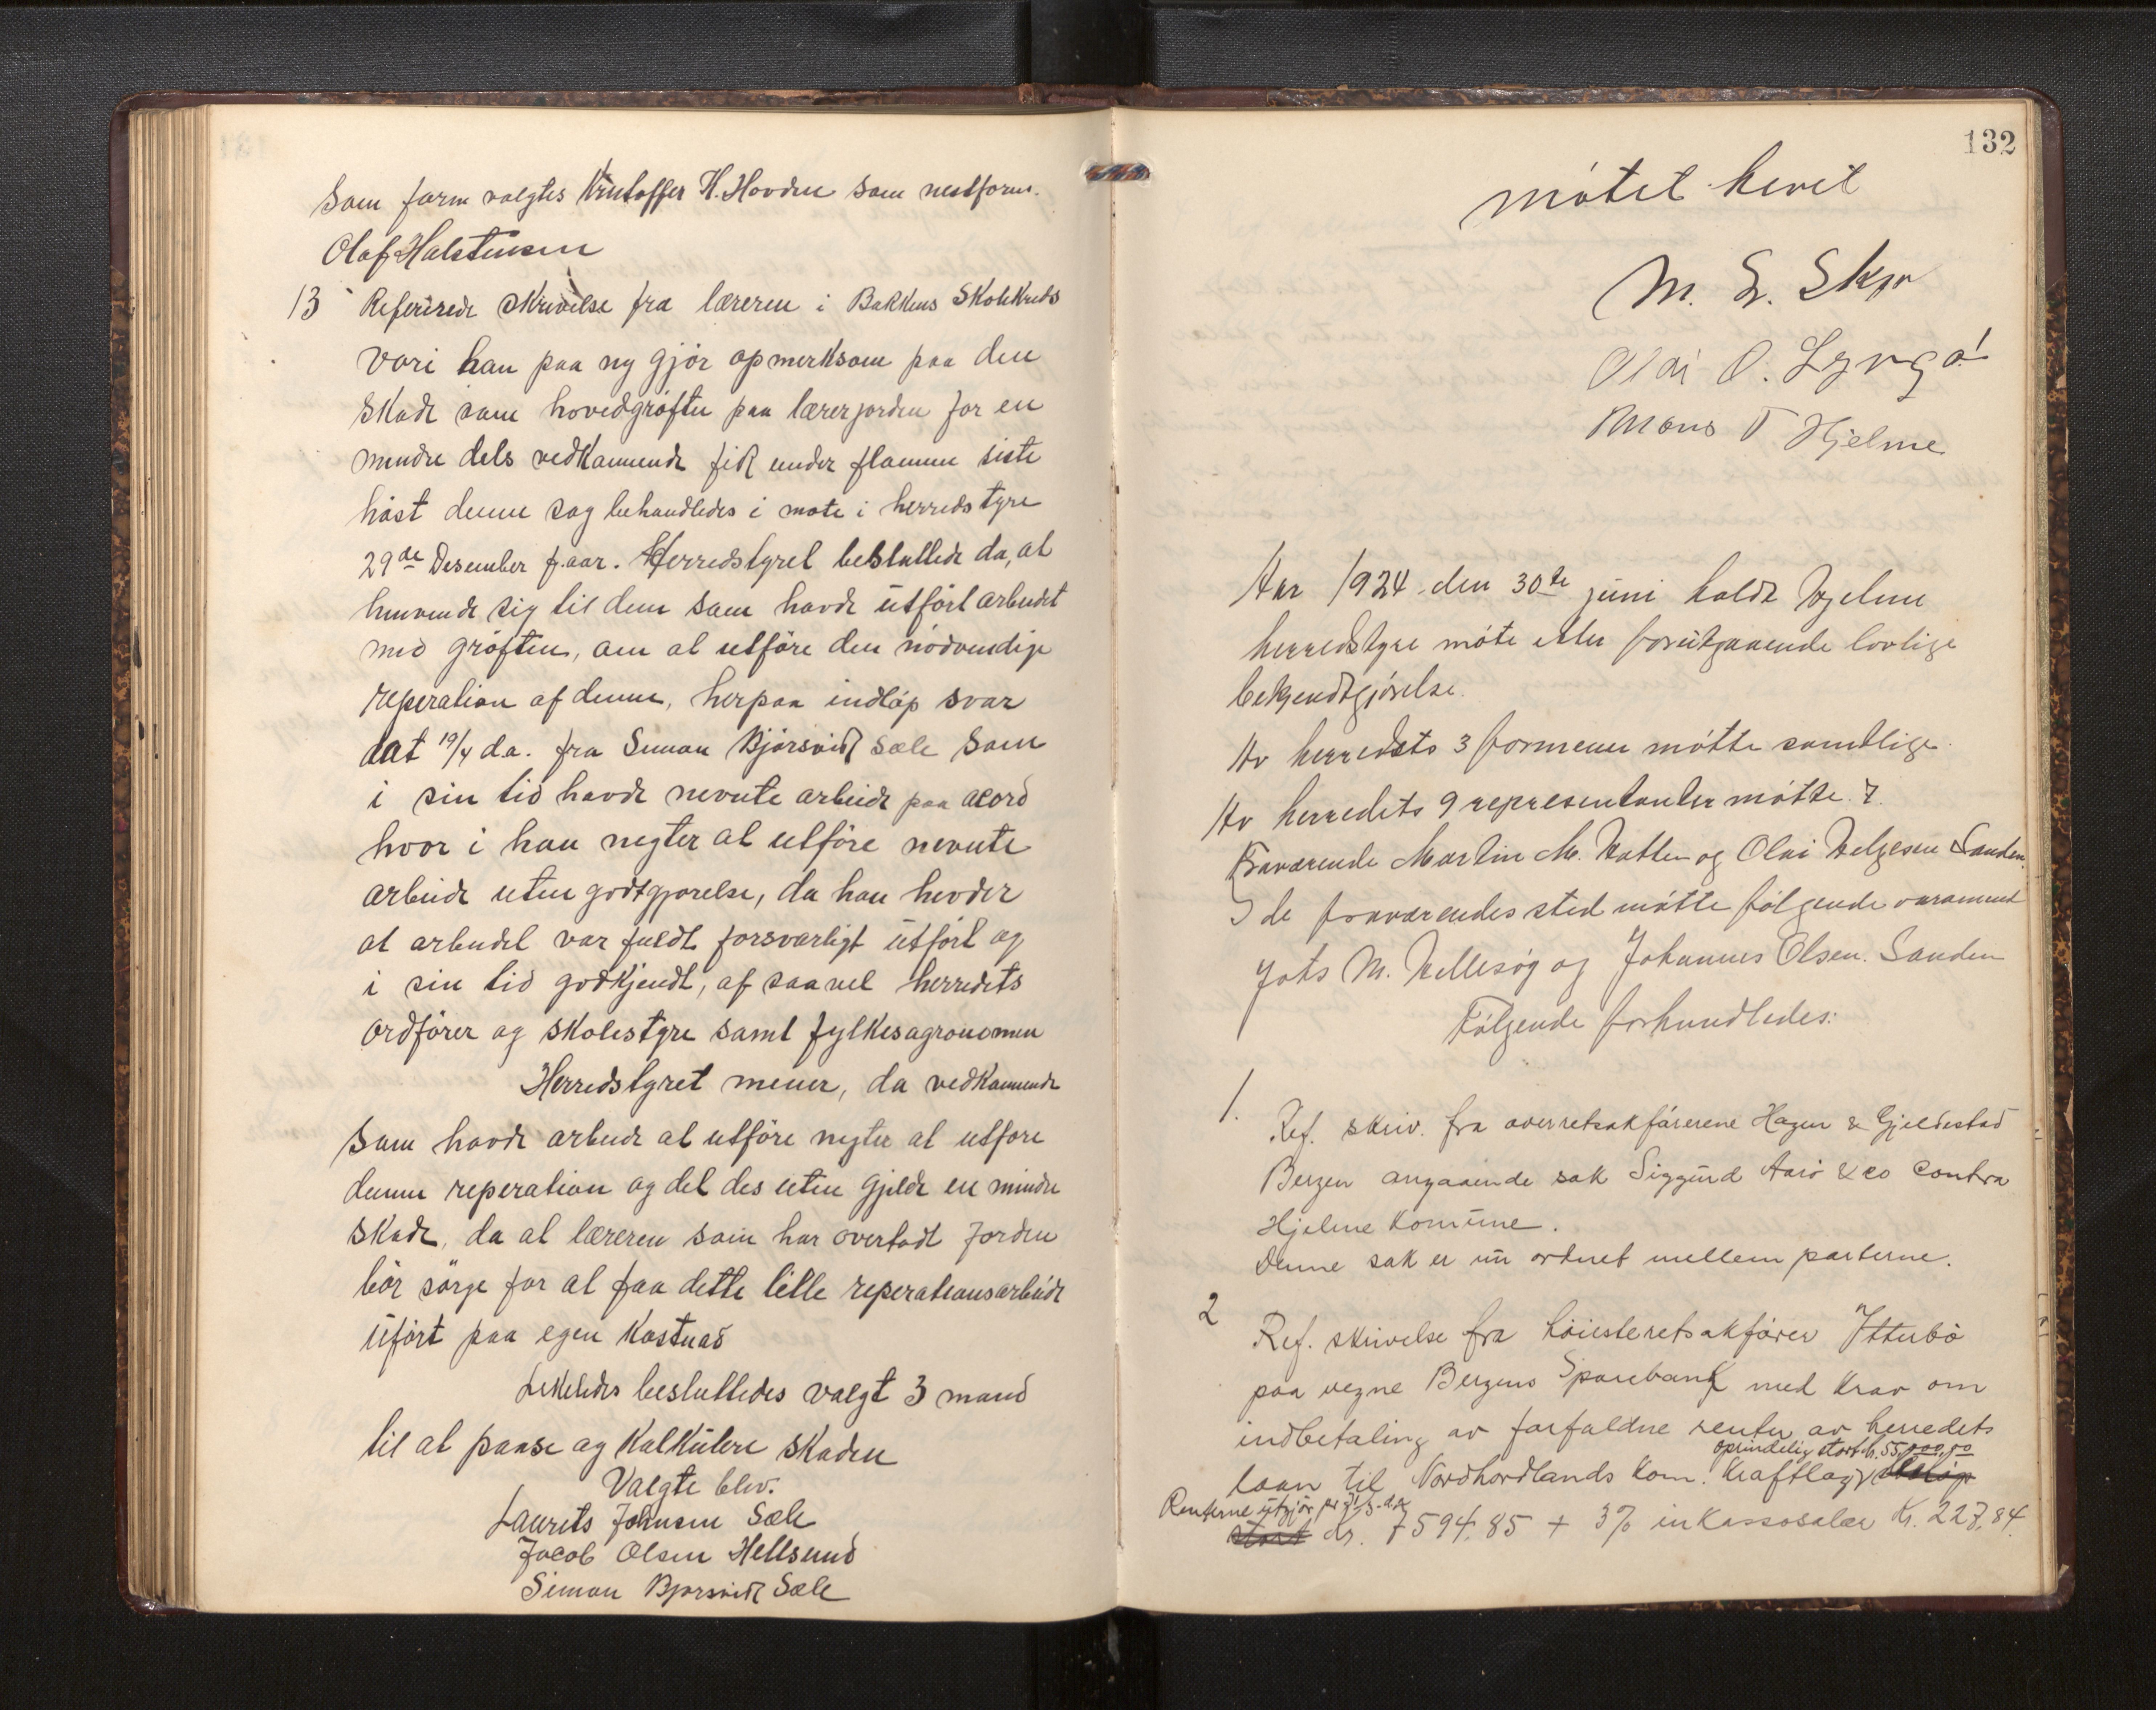 Som form valgtes Kristoffer H. Hovden som nestform.
Olaf Halstensen
13 Refererede skrivelse fra læreren i Bakkens Skolekreds
vori han paa ny gjör opmerksom paa den
skade som hovedgröften paa lærerjorden for en
mindre dels vedkammende fik under flammen siste
höst denne sag behandledes i möte i herredstyre
29de Desember f. aar. Herredstyret besluttede da, at
henvende sig til dem som havde utfört arbeidet
med gröften, om at utföre den nödvendige
reperation af denne, herpaa indlöp svar
dat 19/4 d.a. fra Simon Bjørsvik Sæle som
i sin tid havde nevnte arbeide paa acord
hvor i han negter at utföre nevnte
arbeide uten godtgjorelse, da han hevder
at arbeidet var fuldt forsvarligt utfört og
i sin tid godkjendt, af saavel herredets
ordförer og skolestyre samt fylkesagronomen
Herredstyret mener, da vedkommende
som havde arbeide at utföre negter at utföre
denne reperation og det des uten gjelde en mindre
skade, da at læreren som har overtadt jorden
bör sörge for at faa dette lille reperationsarbeide
uført paa egen kostnad
Likeledes besluttedes valgt 3 mand
til at paase og kalkülere skaden
Valgte blev.
Laurits Johnsen Sæle
Jacob Olsen Hellsund
Simon Bjørsvik Sæle
132
mötet hevet
M. L. Skjo
Olai O. Lyngö
Mons T Hjelme
Aar 1924 den 30te juni holdt Hjelme
herredstyre möte etter forutgaaende lovlige
bekjendtgjörelse.
Av herredets 3 formenn mötte samtlige.
Av herredets 9 representanter mötte 7.
Fraværende Martin M. Vatten og Olai Helgesen Sanden.
I de fraværendes sted mötte fölgende varamend
Johs M. Hellesög og Johannes Olsen Sanden
Fölgende forhandledes:
1. Ref. skriv. fra overretsakförerene Hagen & Gjeldestad
Bergen angaaende sak Siggurd Aarö & co contra
Hjelme Komune.
Denne sak er nu ordnet mellem parterne.
2 Ref. skrivelse fra höiesteretsakförer Ytterbö
paa vegne Bergens Sparebank med krav om
indbetaling av forfaldne renter av herredets
oprindelig stort kr. 55,000,00
laan til Nordhordlands kom. Kraftlag
Renterne utgjör pr 31/5 d.a.
stort kr. 7594,85 + 3% inkassosalær Kr. 227,84